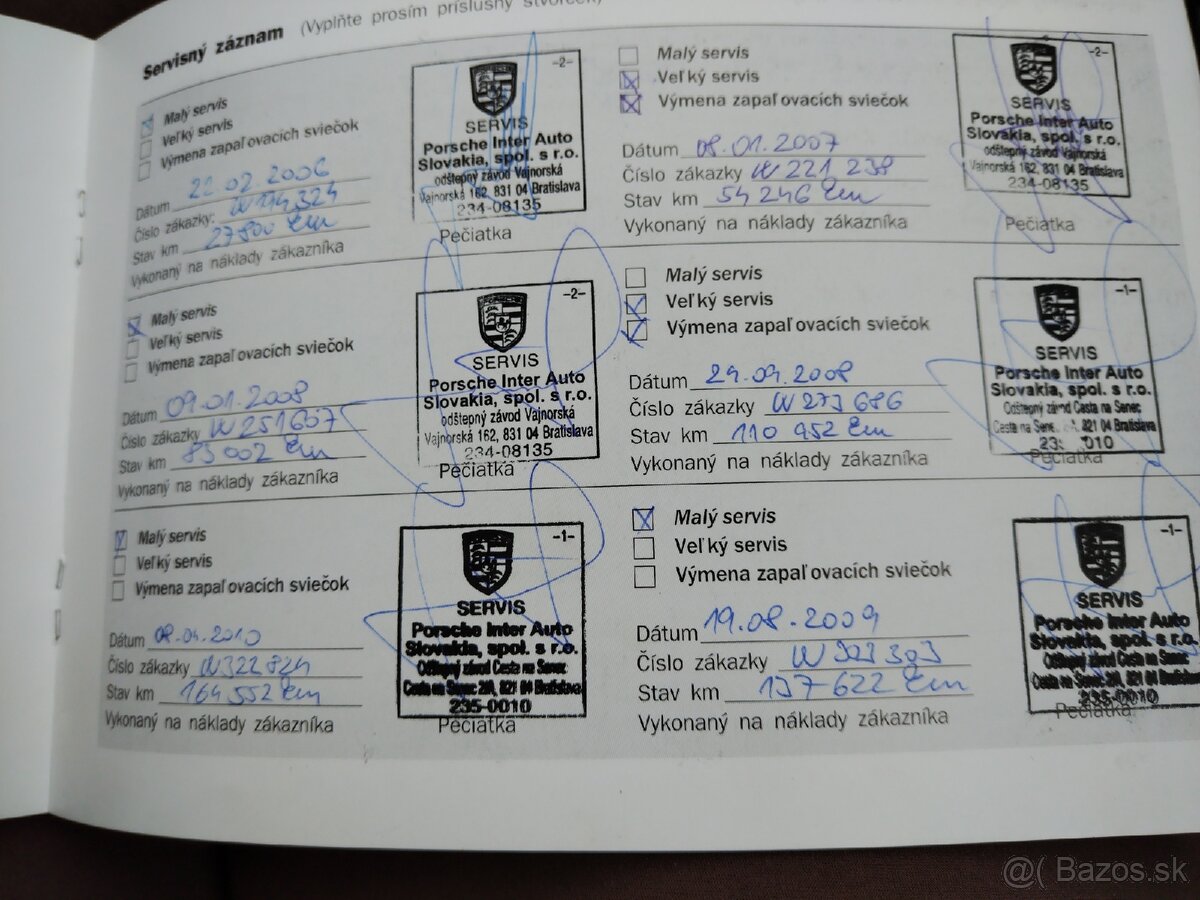 Servisný záznam (Vyplňte prosím príslušný štvorček)
Malý servis
Veľký servis
Výmena zapaľovacích sviečok
Dátum 22.02.2006
Číslo zákazky: W194324
Stav km 27800 km
Vykonaný na náklady zákazníka
-2-
SERVIS
Porsche Inter Auto
Slovakia, spol. s r.o.
odštepný závod Vajnorská
Vajnorská 162, 831 04 Bratislava
234-08135
Pečiatka
Malý servis
Veľký servis
Výmena zapaľovacích sviečok
Dátum 08.01.2007
Číslo zákazky W221 238
Stav km 54 246 km
Vykonaný na náklady zákazníka
-2-
SERVIS
Porsche Inter Auto
Slovakia, spol. s r.o.
odštepný závod Vajnorská
Vajnorská 162, 831 04 Bratislava
234-08135
Pečiatka
Malý servis
Veľký servis
Výmena zapaľovacích sviečok
Dátum 09.01.2008
Číslo zákazky W251607
Stav km 83002 km
Vykonaný na náklady zákazníka
-2-
SERVIS
Porsche Inter Auto
Slovakia, spol. s r.o.
odštepný závod Vajnorská
Vajnorská 162, 831 04 Bratislava
234-08135
Pečiatka
Malý servis
Veľký servis
Výmena zapaľovacích sviečok
Dátum 29.09.2008
Číslo zákazky W273686
Stav km 110 952 km
Vykonaný na náklady zákazníka
-1-
SERVIS
Porsche Inter Auto
Slovakia, spol. s r.o.
Odštepný závod Cesta na Senec
Cesta na 821 04 Bratislava
Pečiatka
Malý servis
Veľký servis
Výmena zapaľovacích sviečok
Dátum 08.04.2010
Číslo zákazky W322824
Stav km 164 552 km
Vykonaný na náklady zákazníka
-1-
SERVIS
Porsche Inter Auto
Slovakia, spol. s r.o.
Odštepný závod Cesta na Senec
Cesta na Senec 821 04 Bratislava
235-0010
Pečiatka
Malý servis
Veľký servis
Výmena zapaľovacích sviečok
Dátum 19.08.2009
Číslo zákazky W303303
Stav km 137 622 km
Vykonaný na náklady zákazníka
-1-
SERVIS
Porsche Inter Auto
Slovakia, spol. s r.o.
Odštepný závod Cesta na Senec
Cesta na Senec 821 04 Bratislava
235-0010
Pečiatka
@( Bazos.sk